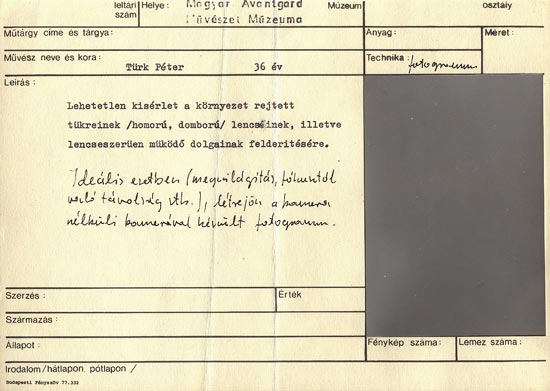 leltári szám
Helye: Magyar Avantgard Művészet Múzeuma Múzeum
osztály
Műtárgy címe és tárgya:
Anyag:
Méret:
Művész neve és kora: Türk Péter 36 év
Technika: fotogramm
Leírás:
Lehetetlen kisérlet a környezet rejtett
tükreinek /homorú, domború/ lencséinek, illetve
lencseszerüen müködő dolgainak felderitésére.
Ideális esetben (megvilágítás, fókusztól
való távolság stb.), létrejön a kamera
nélküli kamerával készült fotogramm.
Szerzés:
Érték
Származás:
Állapot:
Fénykép száma:
Lemez száma:
Irodalom/hátlapon, pótlapon/
Budapesti Fényesöv 77.332